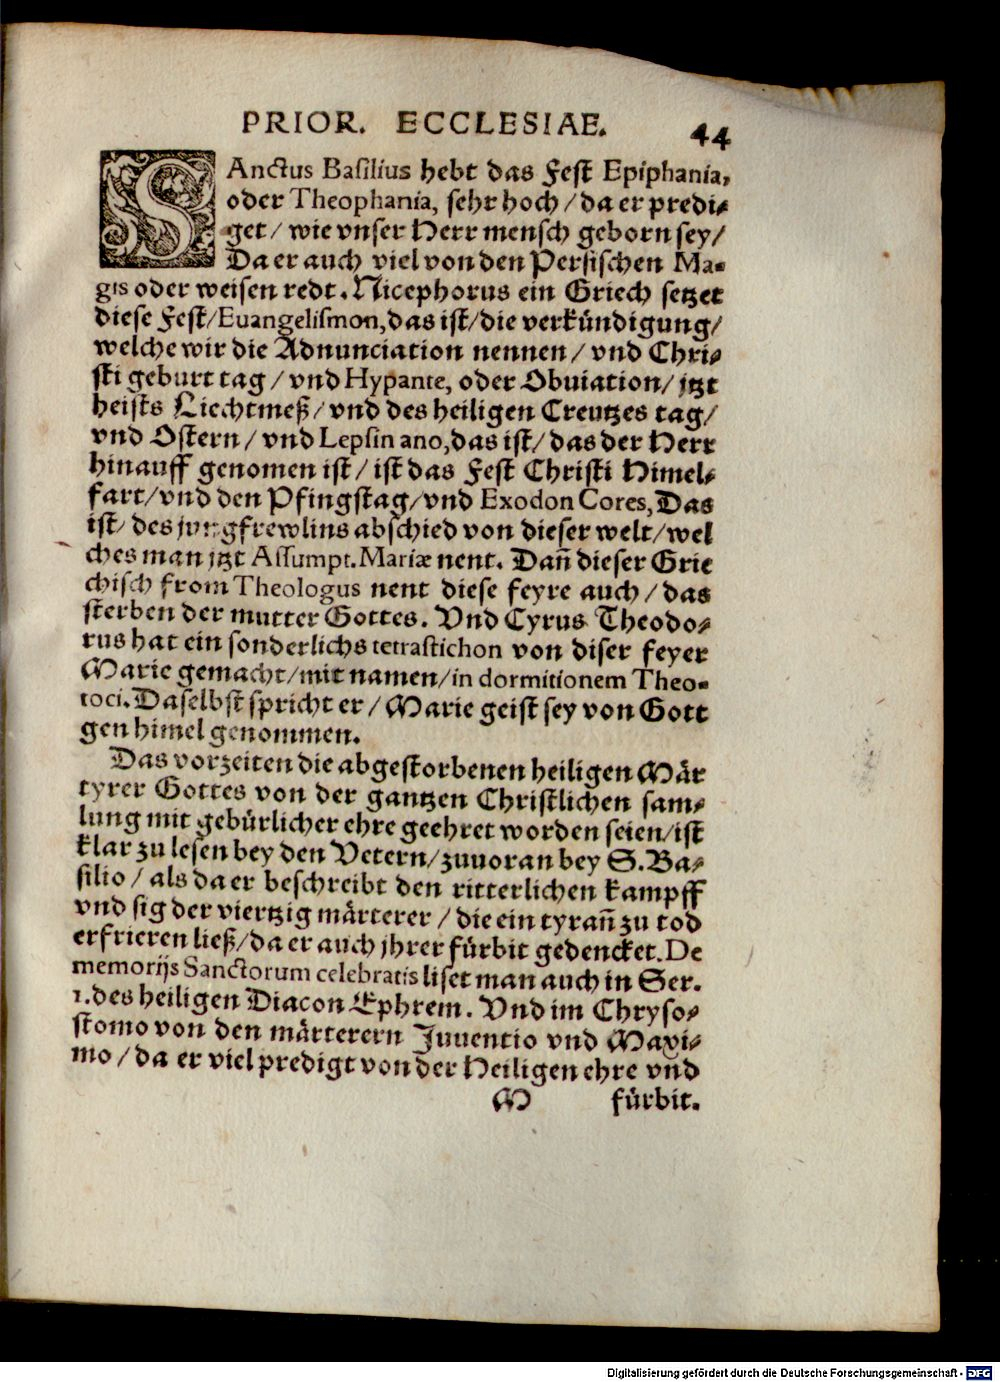 PRIOR. ECCLESIAE. 44
SAnctus Basilius hebt das Fest Epiphania,
oder Theophania, sehr hoch / da er predi⸗
get / wie vnser Herr mensch geborn sey /
Da er auch viel von den Persischen Ma⸗
gis oder weisen redt. Nicephorus ein Griech setzet
diese Fest / Euangelismon, das ist / die verkündigung /
welche wir die Adnunciation nennen / vnd Chri⸗
sti geburt tag / vnd Hypante, oder Obuiation / jtzt
heists Liechtmeß / vnd des heiligen Creutzes tag /
vnd Ostern / vnd Lepsin ano, das ist / das der Herr
hinauff genomen ist / ist das Fest Christi Himel⸗
fart / vnd den Pfingstag / vnd Exodon Cores, Das
ist / des jungfrewlins abschied von dieser welt / wel
ches man jtzt Assumpt. Mariæ nent. Dañ dieser Grie
chisch from Theologus nent diese feyre auch / das
sterben der mutter Gottes. Vnd Cyrus Theodo⸗
rus hat ein sonderlichs tetrastichon von diser feyer
Marie gemacht / mit namen / in dormitionem Theo⸗
toci. Daselbst spricht er / Marie geist sey von Gott
gen himel genommen.
Das vorzeiten die abgestorbenen heiligen Mär
tyrer Gottes von der gantzen Christlichen sam⸗
lung mit gebürlicher ehre geehret worden seien / ist
klar zu lesen bey den Vetern / zuuoran bey S. Ba⸗
silio / als da er beschreibt den ritterlichen kampff
vnd sig der viertzig märterer / die ein tyrañ zu tod
erfrieren ließ / da er auch jhrer fürbit gedencket. De
memorijs Sanctorum celebratis liset man auch in Ser.
1. des heiligen Diacon Ephrem. Vnd im Chryso⸗
stomo von den märterern Juuentio vnd Maxi⸗
mo / da er viel predigt von der Heiligen ehre vnd
M fürbit.
Digitalisierung gefördert durch die Deutsche Forschungsgemeinschaft - DFG